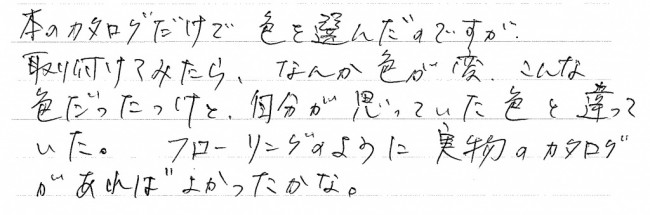 本のカタログだけで 色を選んだのですが.
取り付けてみたら、なんか色が変. こんな
色だったっけと、自分が思っていた色と違って
いた。 フローリングのように実物のカタログ
があればよかったかな。